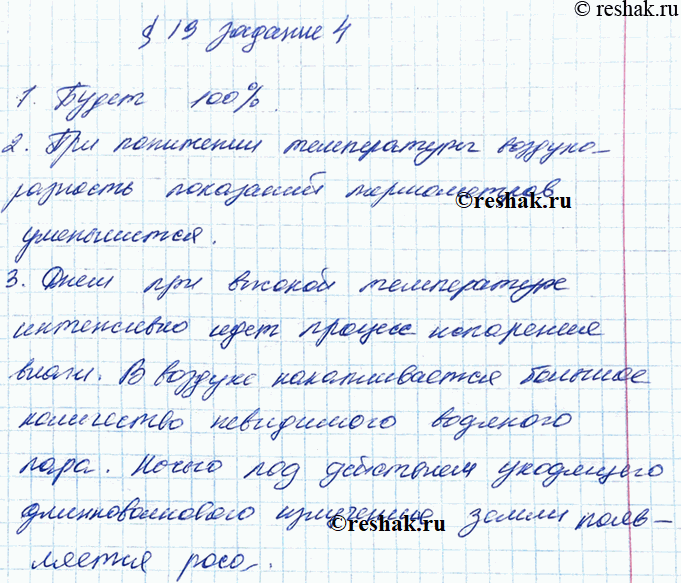 © reshak.ru
§ 19 задание 4
1. Будет 100%.
2. При понижении температуры воздуха
разность показаний термометров
©reshak.ru
уменьшится.
3. Днем при высокой температуре
интенсивно идет процесс испарения
влаги. В воздухе накапливается большое
количество невидимого водяного
пара. Ночью под действием уходящего
длинноволнового излучение земли появ-
©reshak.ru
ляется роса.